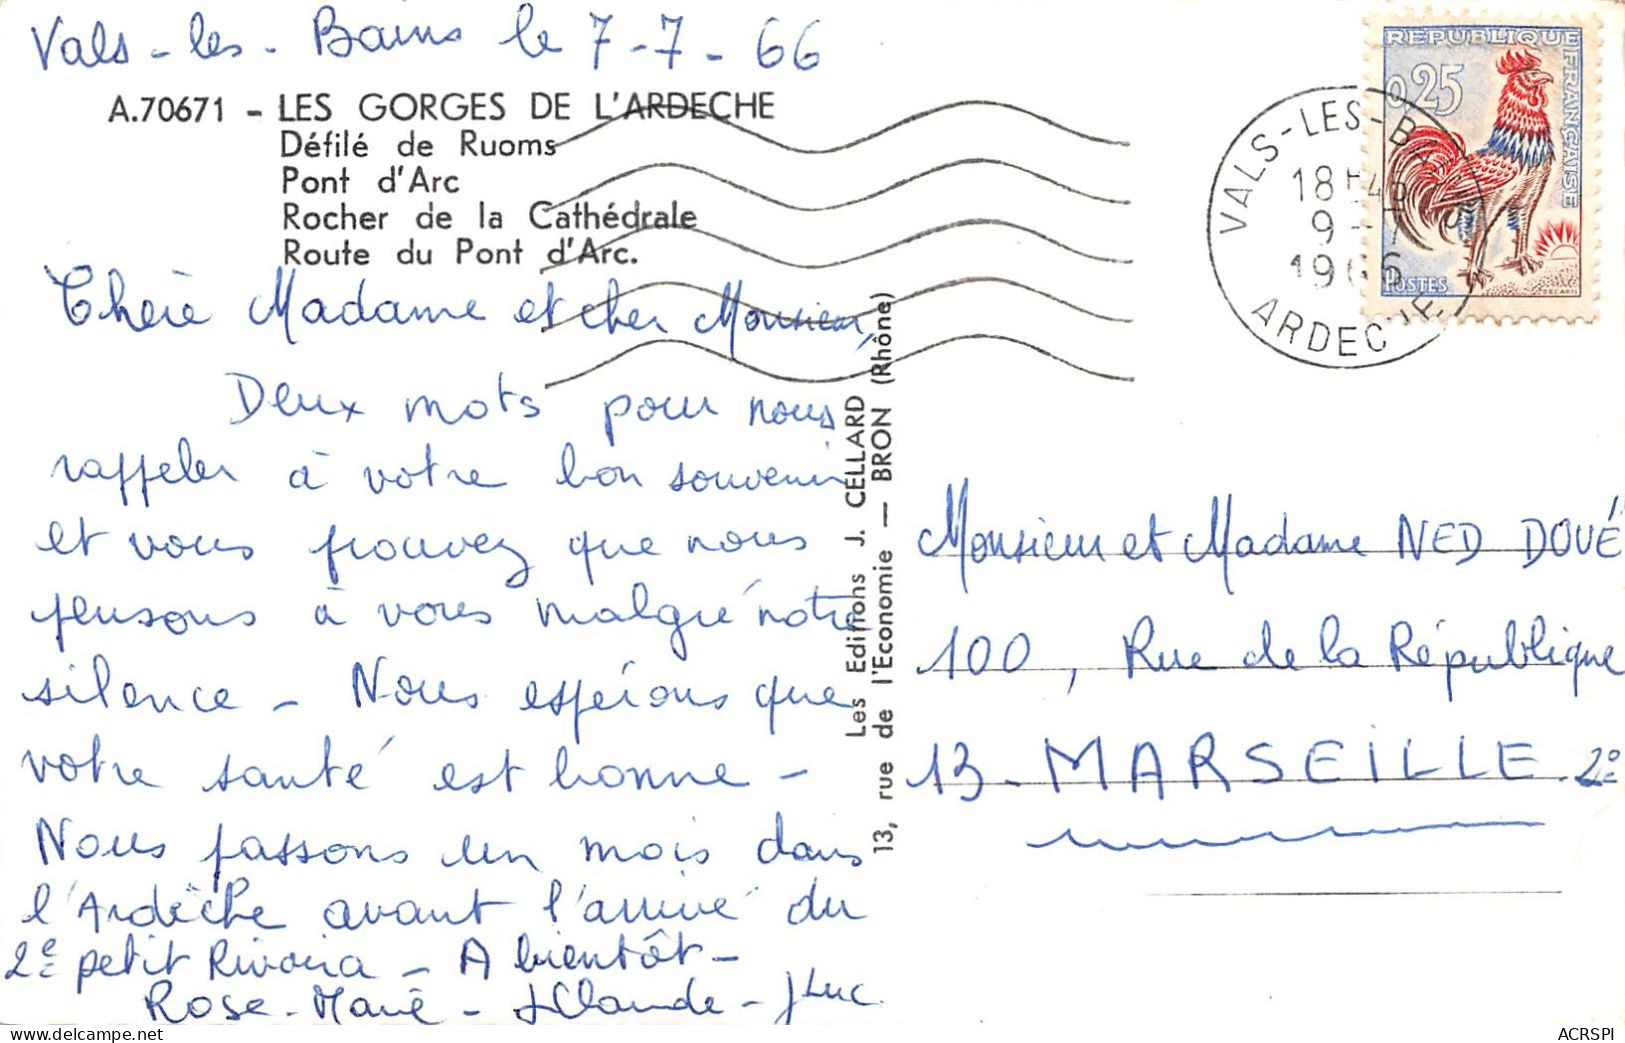 Vals-les-Bains le 7-7-66
A.70671 - LES GORGES DE L'ARDECHE
Défilé de Ruoms
Pont d'Arc
Rocher de la Cathédrale
Route du Pont d'Arc.
Chère Madame et cher Monsieur,
Deux mots pour nous
rappeler à votre bon souvenir
et vous prouvez que nous
pensons à vous malgré notre
silence - Nous espérons que
votre santé est bonne -
Nous passons un mois dans
l'Ardèche avant l'arrivé du
2e petit Rivoira - A bientôt -
Rose-Marie - JClaude - JLuc
Les Editions J. CELLARD
13, rue de l'Economie — BRON (Rhône)
REPUBLIQUE FRANÇAISE
0,25
POSTES
DECARIS
VALS-LES-BAINS
18H45
9-7
1966
ARDECHE
Monsieur et Madame NED DOUÉ
100, Rue de la République
13-MARSEILLE-2e
ACRSPI